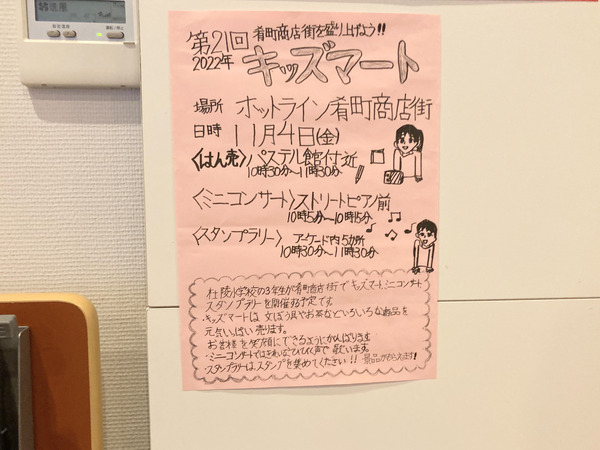 肴町商店街を盛り上げよう!!
第21回
2022年
キッズマート
場所 ホットライン肴町商店街
日時 11月4日(金)
〈はん売〉パステル館付近
10時30分〜11時30分
〈ミニコンサート〉ストリートピアノ前
10時5分〜10時15分
〈スタンプラリー〉アーケード内5カ所
10時30分〜11時30分
杜陵小学校の3年生が肴町商店街でキッズマート、ミニコンサート
スタンプラリーを開催する予定です。
キッズマートは、文ぼう具やお茶などいろいろな商品を
元気いっぱい売ります。
お客様を笑顔にできるようにがんばります
・ミニコンサートではきれいなひびく声で歌います。
・スタンプラリーはスタンプを集めてください!! 景品がもらえます!